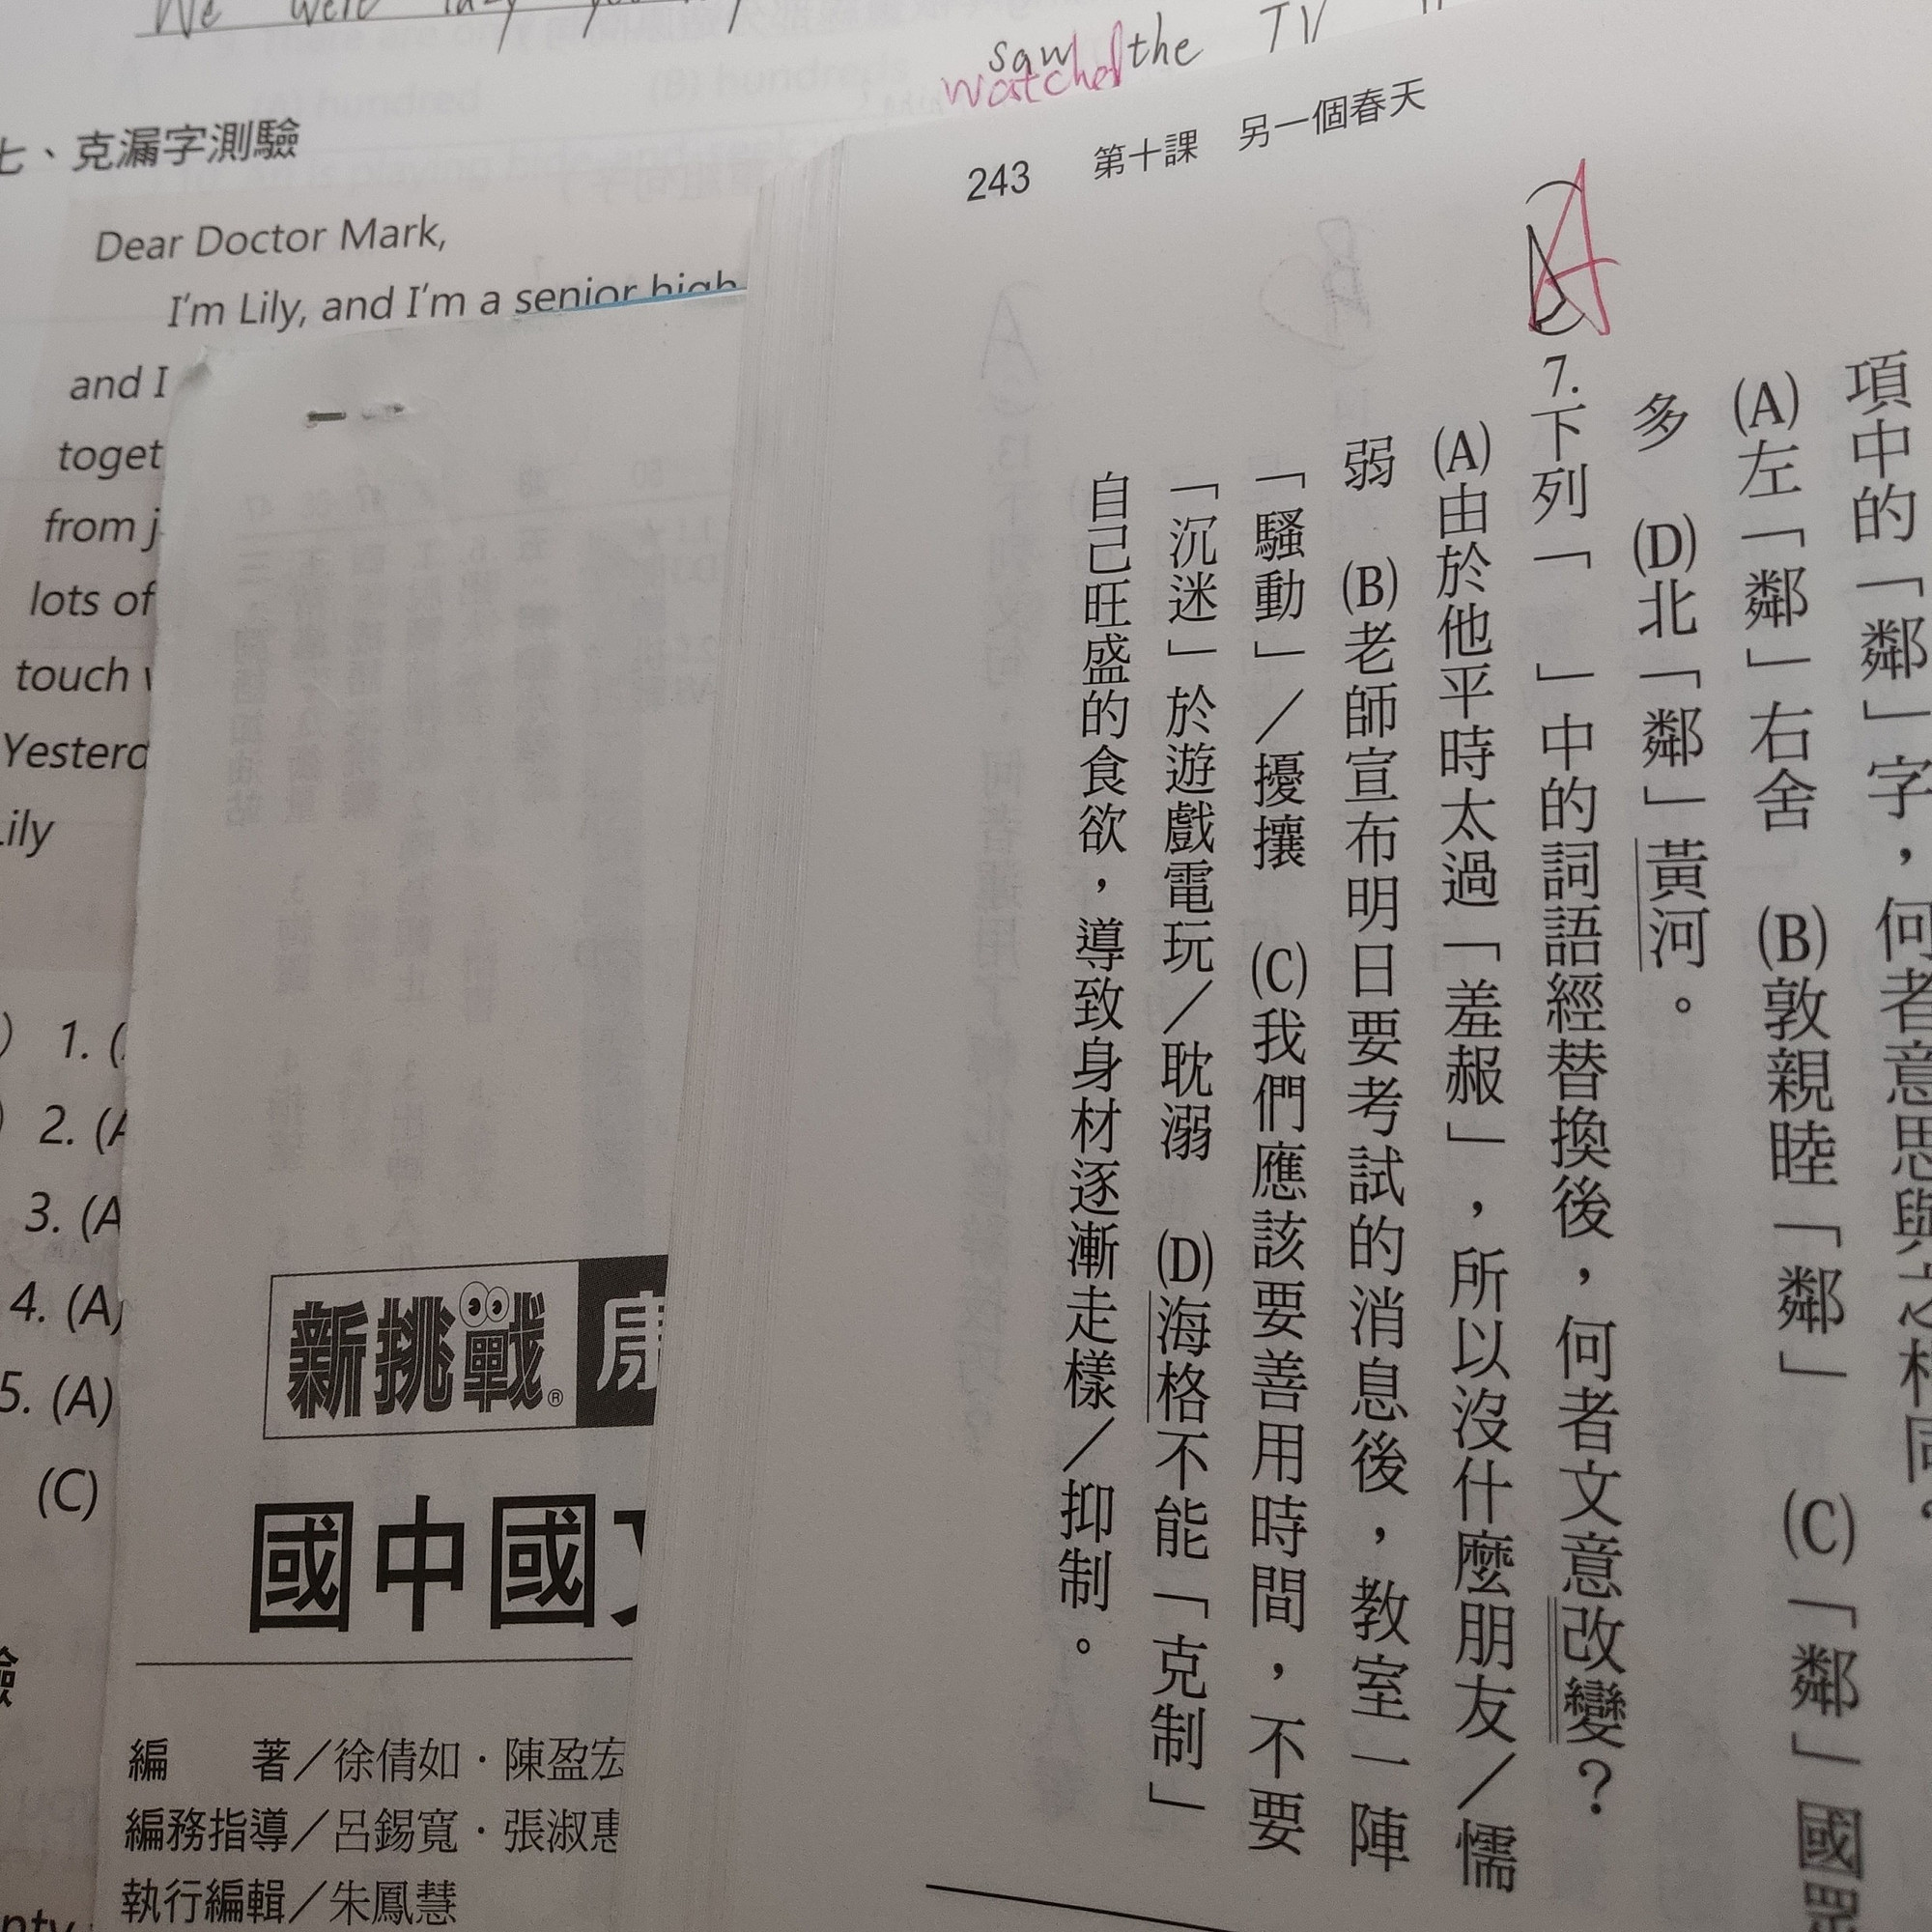 We were lazy
saw the TV
watched
七、克漏字測驗
Dear Doctor Mark,
I'm Lily, and I'm a senior high
and I
toget
from j
lots of
touch
Yesterd
Lily
1. (
2. (A
3. (A
4. (A)
5. (A)
(C)
新挑戰®
國中國
編 著／徐倩如．陳盈宏
編務指導／呂錫寬．張淑惠
執行編輯／朱鳳慧
243 第十課 另一個春天
項中的「鄰」字，何者意思與之相同。
(A)左「鄰」右舍 (B)敦親睦「鄰」 (C)「鄰」國眾
多 (D)北「鄰」黃河。
A
7.下列「 」中的詞語經替換後，何者文意改變？
(A)由於他平時太過「羞赧」，所以沒什麼朋友／懦
弱 (B)老師宣布明日要考試的消息後，教室一陣
「騷動」／擾攘 (C)我們應該要善用時間，不要
「沉迷」於遊戲電玩／耽溺 (D)海格不能「克制」
自己旺盛的食欲，導致身材逐漸走樣／抑制。